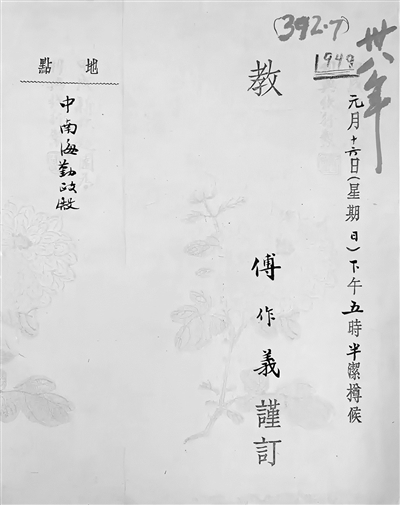 (392.7)
1949
卅八年
元月十六日(星期日)下午五時半潔樽候
教
傅作義謹訂
地點
中南海勤政殿